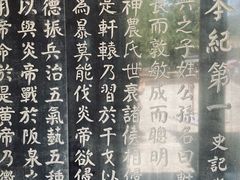 本紀第一 史記
之子姓公孫名曰軒
長而敦敏成而聰明
神農氏世衰諸侯相侵
是軒轅乃習用干戈以
為暴莫能伐炎帝欲侵
德振兵治五氣蓺五種
以與炎帝戰於阪泉
用帝命於是黃帝乃徵